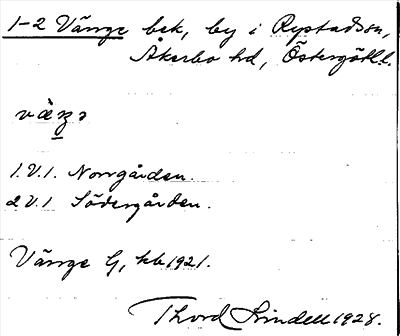 1-2 Vänge bek, by i Rystadssn,
Åkerbo hd, Östergötl.l.
1. V. 1. Norrgården.
2. V. 1 Södergården.
Vänge G, kb 1921.
Thord Lindell 1928.